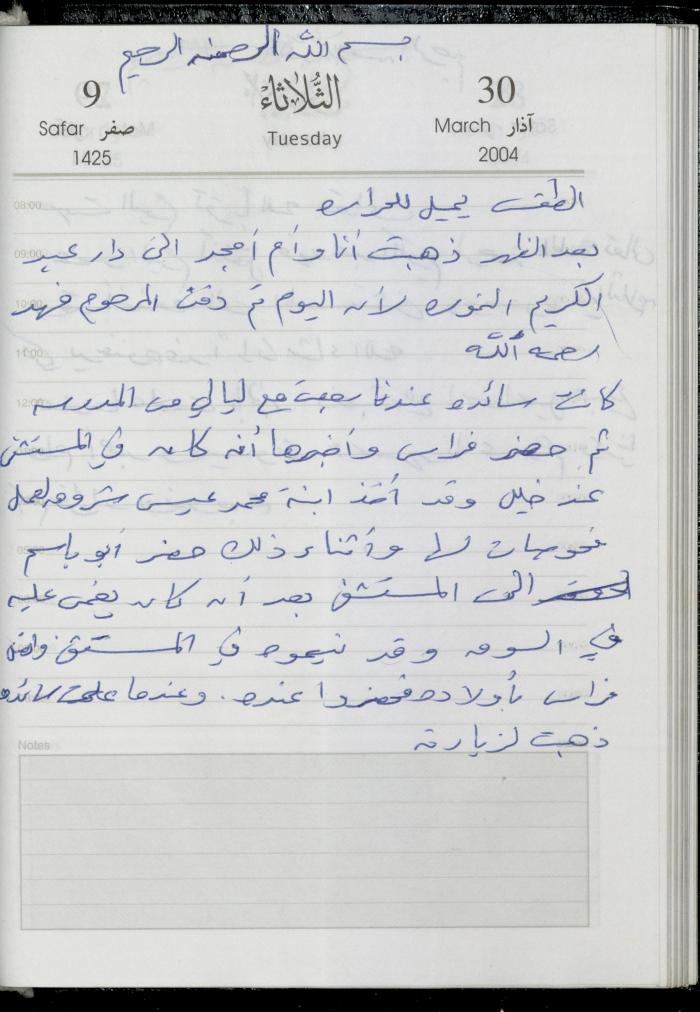 بسم الله الرحمن الرحيم
9 الثُّلاثاءْ 30
Safar صفر Tuesday March آذار
1425 2004
08:00 الطقس يميل للحرارة
09:00 بعد الظهر ذهبت أنا وأم أمجد الى دار عبد
10:00 الكريم لأن اليوم تم دفن المرحوم فهد
11:00 رحمه الله
12:00 كانت سائده عندنا رجعت مع ليالي من المدرسه
ثم حضر فراس وأخبرها أنه كان في المستشفى
عند خليل وقد أخذ ابنة محمد عيسى لعمل
فحوصات لها وأثناء ذلك حضر أبو باسم
الى المستشفى بعد أن كان يغمى عليه
في السوق وقد في المستشفى
فراس بأولاده فحضروا عنده. وعندما علمت سائده
ذهبت لزيارته
Notes